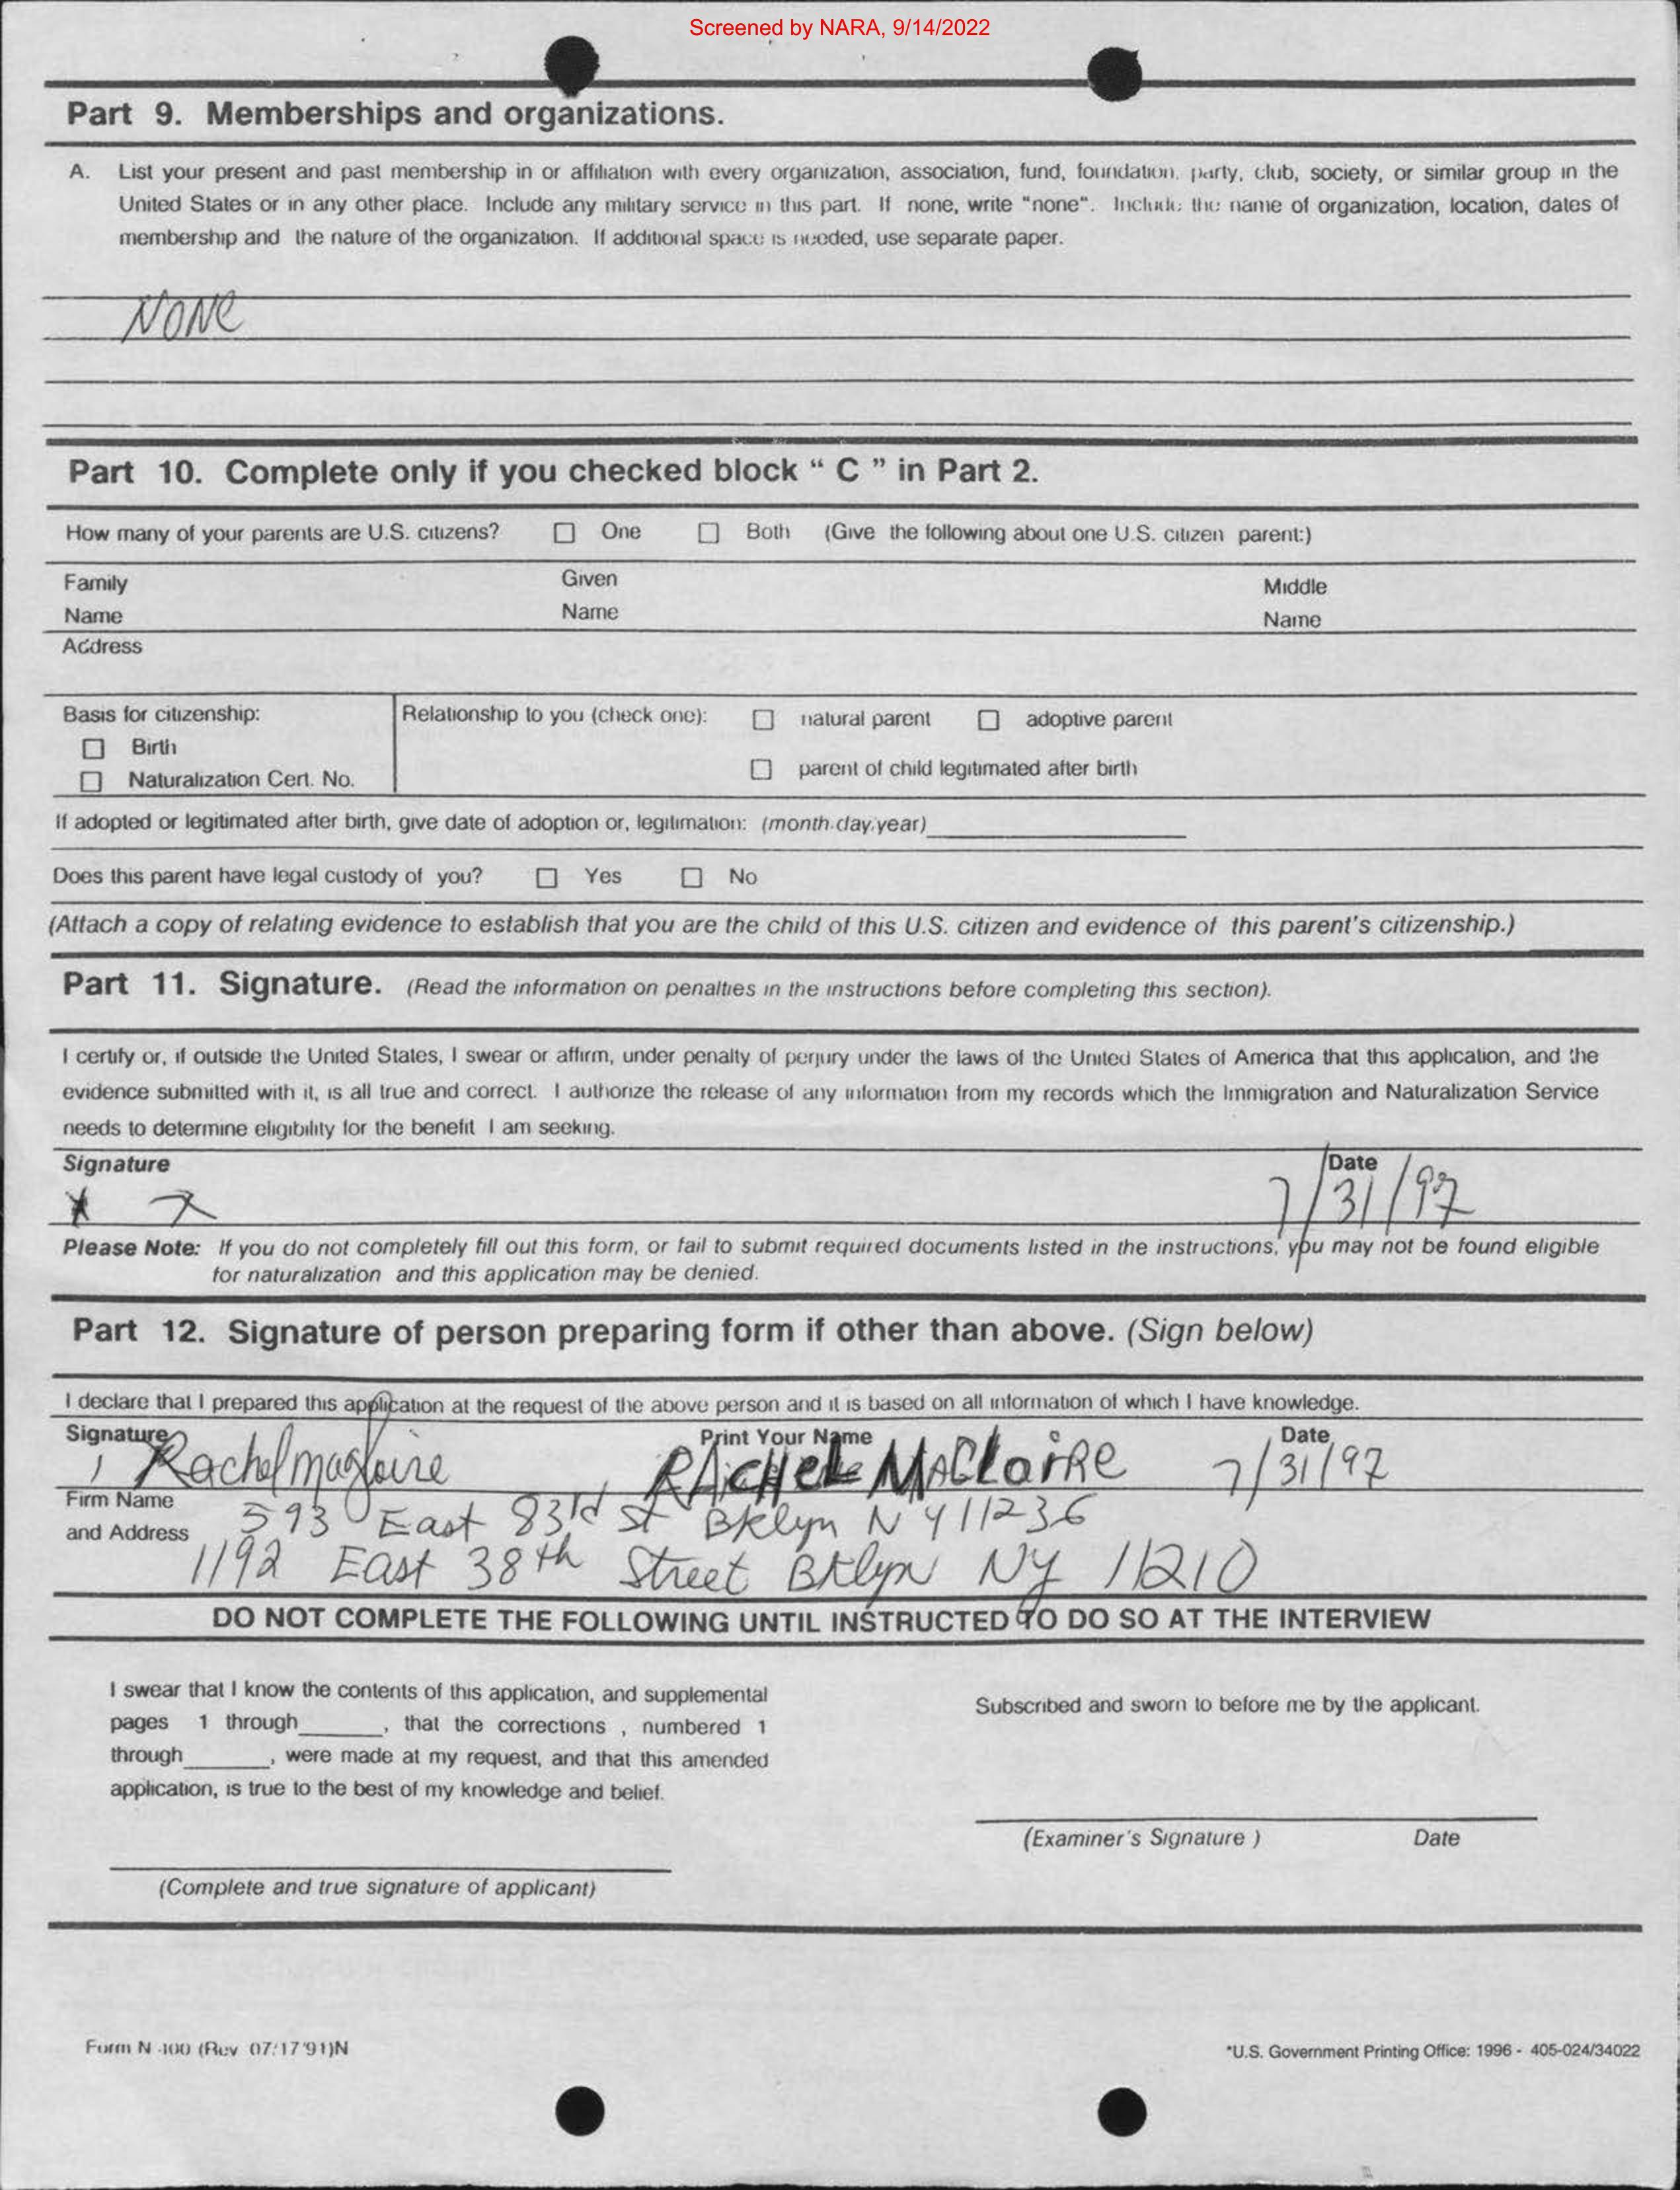 Screened by NARA, 9/14/2022
Part 9. Memberships and organizations.
A. List your present and past membership in or affiliation with every organization, association, fund, foundation, party, club, society, or similar group in the
United States or in any other place. Include any military service in this part. If none, write "none". Include the name of organization, location, dates of
membership and the nature of the organization. If additional space is needed, use separate paper.
NONE
Part 10. Complete only if you checked block “ C ” in Part 2.
How many of your parents are U.S. citizens? ☐ One ☐ Both (Give the following about one U.S. citizen parent:)
Family Given Middle
Name Name Name
Address
Basis for citizenship: Relationship to you (check one): ☐ natural parent ☐ adoptive parent
☐ Birth
☐ parent of child legitimated after birth
☐ Naturalization Cert. No.
If adopted or legitimated after birth, give date of adoption or, legitimation: (month,day,year)
Does this parent have legal custody of you? ☐ Yes ☐ No
(Attach a copy of relating evidence to establish that you are the child of this U.S. citizen and evidence of this parent's citizenship.)
Part 11. Signature. (Read the information on penalties in the instructions before completing this section).
I certify or, if outside the United States, I swear or affirm, under penalty of perjury under the laws of the United States of America that this application, and the
evidence submitted with it, is all true and correct. I authorize the release of any information from my records which the Immigration and Naturalization Service
needs to determine eligibility for the benefit I am seeking.
Signature Date
7/31/97
Please Note: If you do not completely fill out this form, or fail to submit required documents listed in the instructions, you may not be found eligible
for naturalization and this application may be denied.
Part 12. Signature of person preparing form if other than above. (Sign below)
I declare that I prepared this application at the request of the above person and it is based on all information of which I have knowledge.
Signature Print Your Name Date
Rachel RACHEL 7/31/97
Firm Name
593 East 83rd St Bklyn NY 11236
and Address
1192 East 38th Street Bklyn NY 11210
DO NOT COMPLETE THE FOLLOWING UNTIL INSTRUCTED TO DO SO AT THE INTERVIEW
I swear that I know the contents of this application, and supplemental
pages 1 through______, that the corrections , numbered 1
through______, were made at my request, and that this amended
application, is true to the best of my knowledge and belief.
Subscribed and sworn to before me by the applicant.
(Examiner's Signature ) Date
(Complete and true signature of applicant)
Form N-400 (Rev 07/17/91)N
*U.S. Government Printing Office: 1996 - 405-024/34022